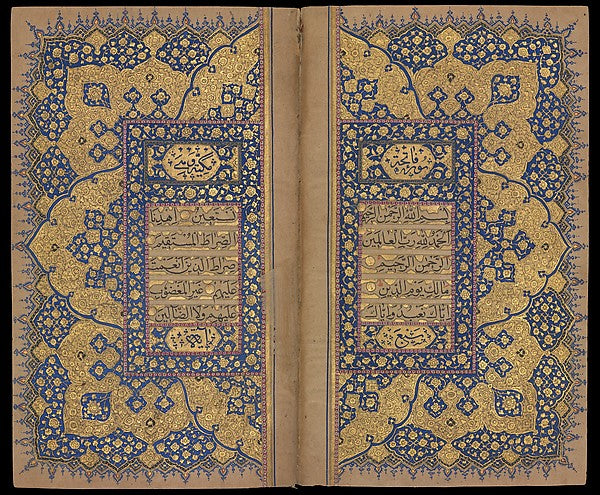 سورة فاتحة
بسم الله الرحمن الرحيم
الحمد لله رب العالمين
الرحمن الرحيم
مالك يوم الدين
اياك نعبد واياك
سبع
مكية
نستعين اهدنا
الصراط المستقيم
صراط الذين انعمت
عليهم غير المغضوب
عليهم ولا الضالين